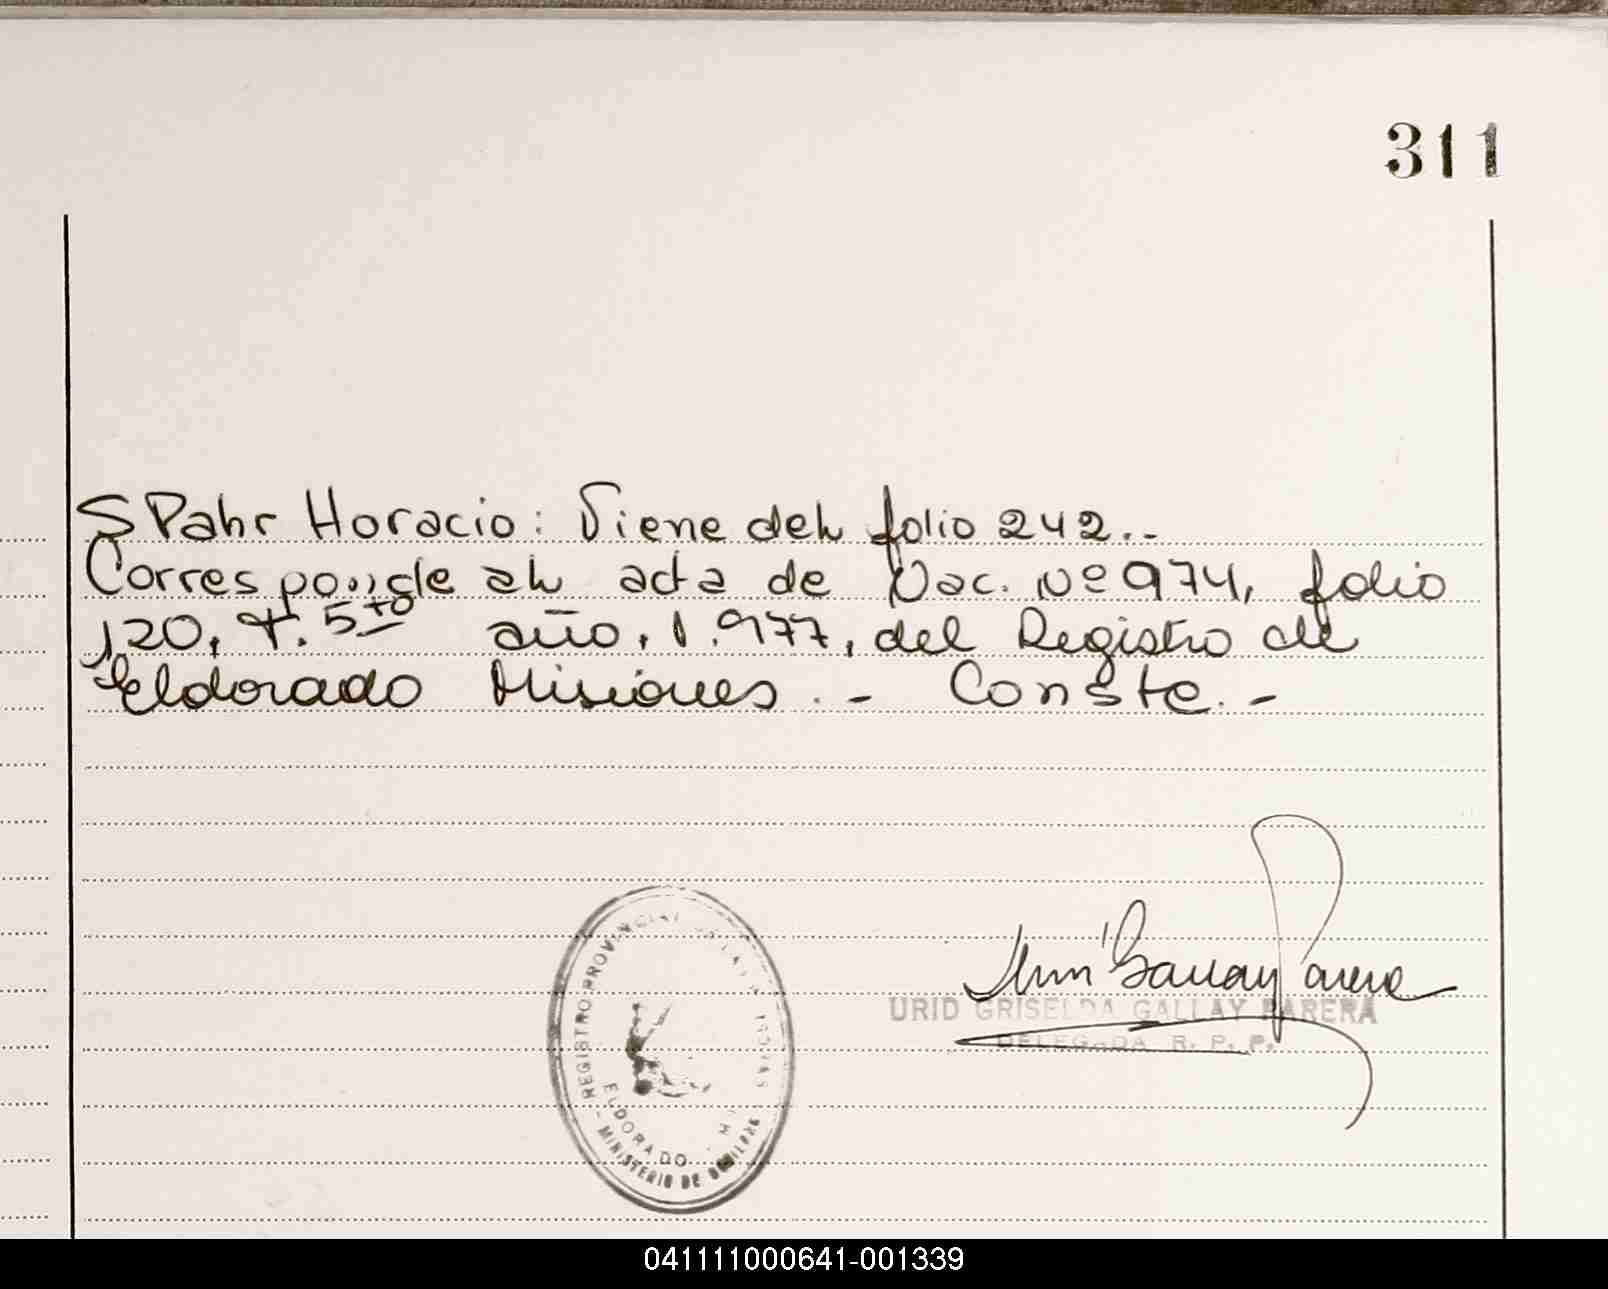 311
SPahr Horacio: Viene del folio 242..-
Corresponde al acta de Nac. Nº 974, folio
120, T. 5to año, 1.977, del Registro de
Eldorado Misiones.- Conste.-
Gallay Parera
URID GRISELDA GALLAY PARERA
DELEGADA R. P. P.
REGISTRO PROVINCIAL DE LAS PERSONAS
ELDORADO
MINISTERIO DE
041111000641-001339